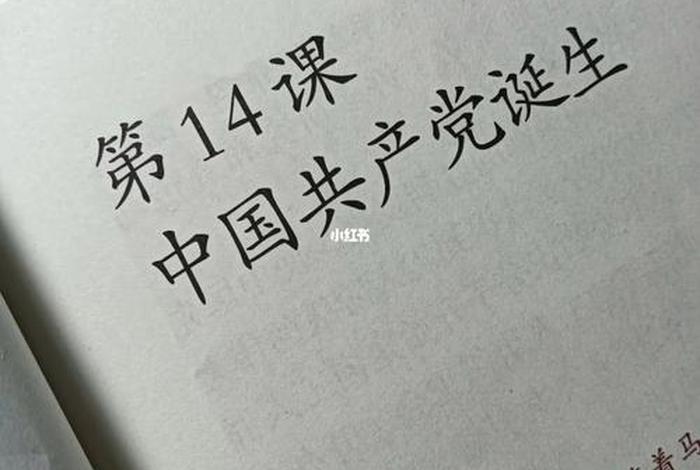 第14课
中国共产党诞生
小红书
着马